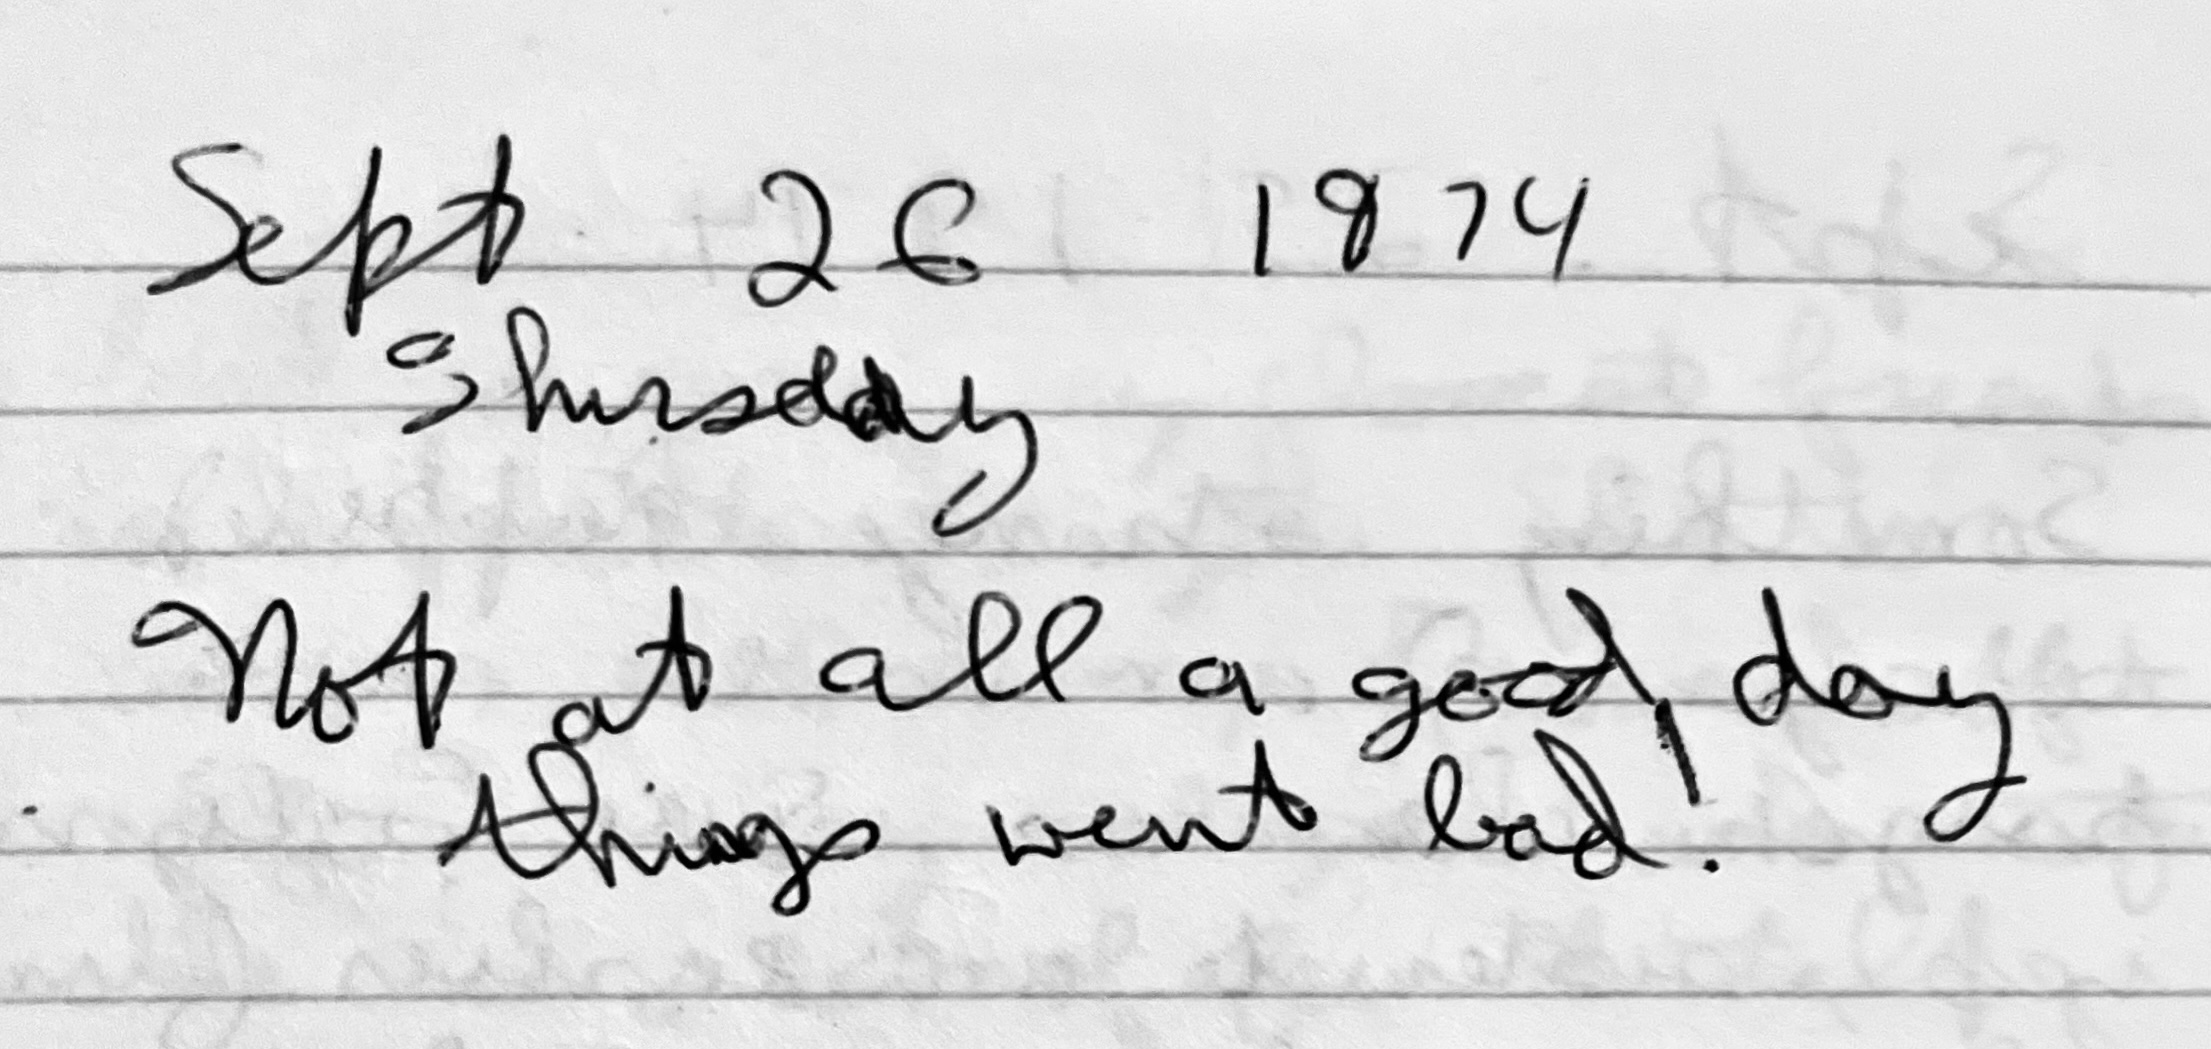 Sept 26 1974
Thursday
Not at all a good day
things went bad!